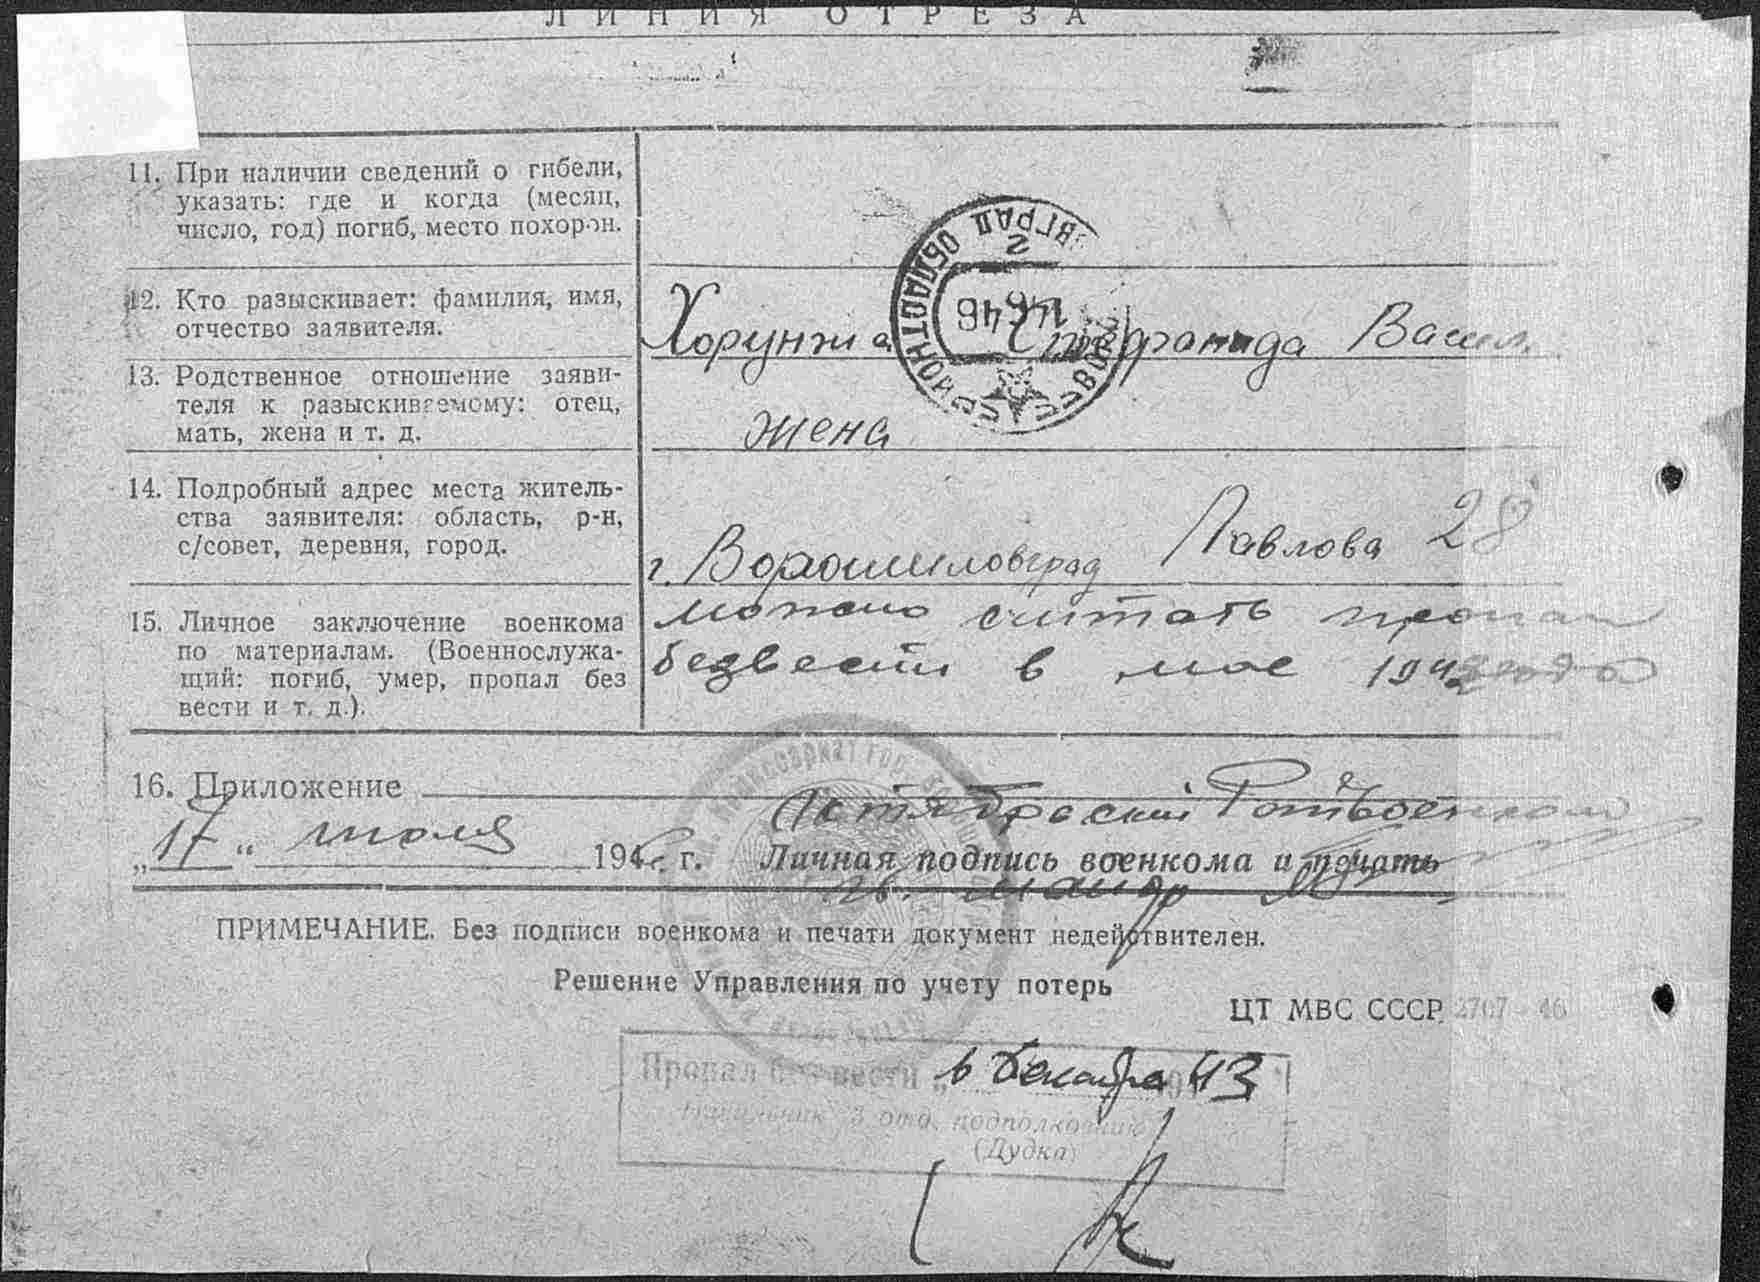 ЛИНИЯ ОТРЕЗА
11. При наличии сведений о гибели,
указать: где и когда (месяц,
число, год) погиб, место похорон.
12. Кто разыскивает: фамилия, имя,
отчество заявителя.
Хорунжиа Стефанида Васил.
13. Родственное отношение заяви-
теля к разыскиваемому: отец,
мать, жена и т. д.
жена
14. Подробный адрес места житель-
ства заявителя: область, р-н,
с/совет, деревня, город.
г. Ворошиловград Павлова 28
15. Личное заключение военкома
по материалам. (Военнослужа-
щий: погиб, умер, пропал без
вести и т. д.).
можно считать пропал
безвести в мае 1942 года
16. Приложение
Октябрьский Райвоенком
„17“ июля 1946 г. Личная подпись военкома и печать
майор
ПРИМЕЧАНИЕ. Без подписи военкома и печати документ недействителен.
Решение Управления по учету потерь
ЦТ МВС СССР 2707—46
Пропал без вести в декабре 1943
Начальник 3 отд. подполковник
(Дудка)